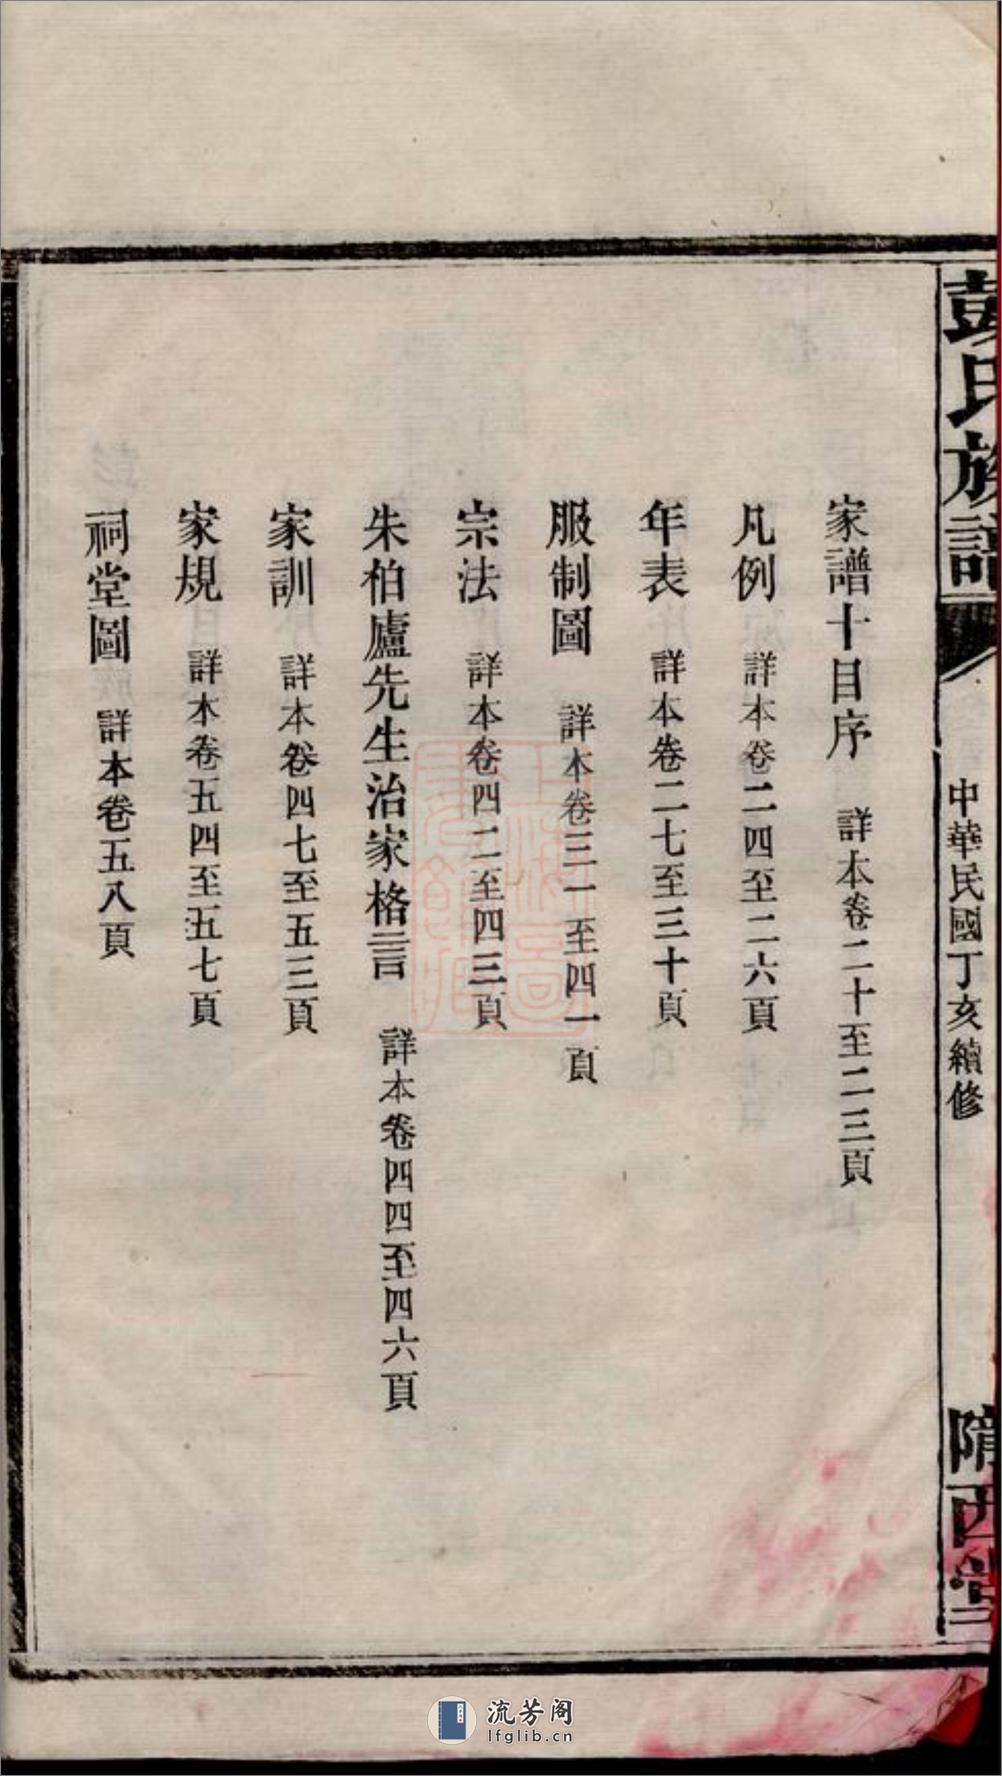 彭氏族譜
中華民國丁亥續修
隋西堂
家譜十目序　詳本卷二十至二三頁
凡例　詳本卷二四至二六頁
年表　詳本卷二七至三十頁
服制圖　詳本卷三一至四一頁
宗法　詳本卷四二至四三頁
朱柏廬先生治家格言　詳本卷四四至四六頁
家訓　詳本卷四七至五三頁
家規　詳本卷五四至五七頁
祠堂圖　詳本卷五八頁
流芳阁
lfglib.cn